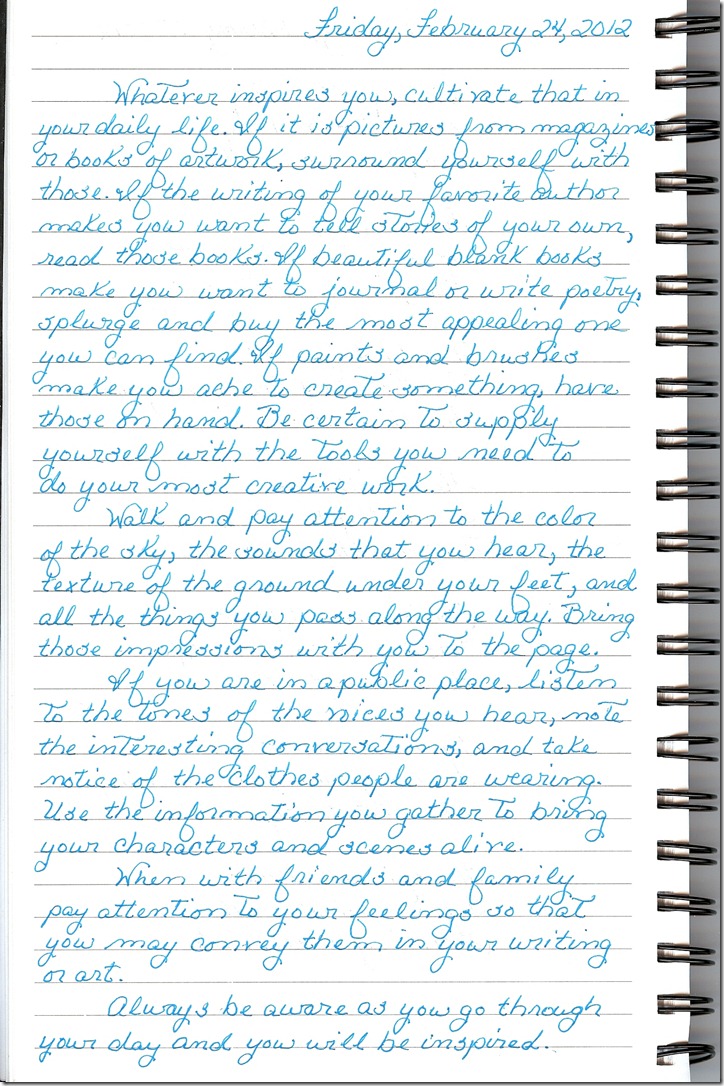 Friday, February 24, 2012
Whatever inspires you, cultivate that in
your daily life. If it is pictures from magazines
or books of artwork, surround yourself with
those. If the writing of your favorite author
makes you want to tell stories of your own,
read those books. If beautiful blank books
make you want to journal or write poetry,
splurge and buy the most appealing one
you can find. If paints and brushes
make you ache to create something, have
those on hand. Be certain to supply
yourself with the tools you need to
do your most creative work.
Walk and pay attention to the color
of the sky, the sounds that you hear, the
texture of the ground under your feet, and
all the things you pass along the way. Bring
those impressions with you to the page.
If you are in a public place, listen
to the tones of the voices you hear, note
the interesting conversations, and take
notice of the clothes people are wearing.
Use the information you gather to bring
your characters and scenes alive.
When with friends and family
pay attention to your feelings so that
you may convey them in your writing
or art.
Always be aware as you go through
your day and you will be inspired.